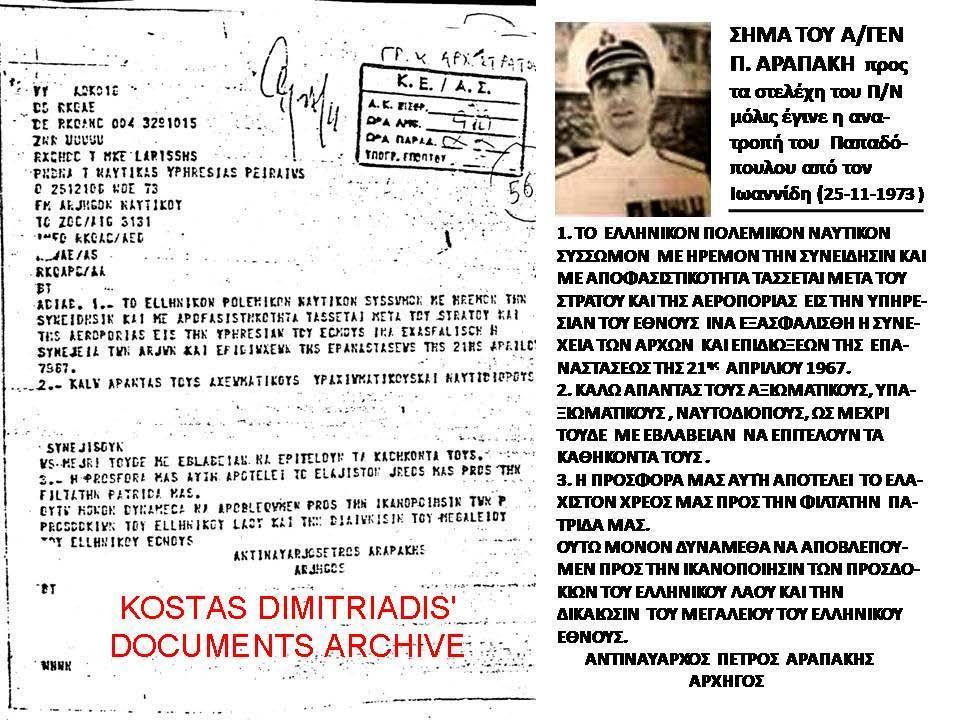 ΓΡ. Κ ΑΡΧ ΣΤΡΑΤΟΥ
Κ. Ε / Α. Σ.
Α. Κ. ΕΙΣΕΡ.
ΩΡΑ ΑΦΣ.
ΩΡΑ ΠΑΡΑΔ.
ΥΠΟΓΡ. ΕΠΟΠΤΟΥ
56
VV ADK016
DE RKGAE
DE RKGANC 004 3291015
ZNR UUUUU
RXGHCC T MKE LARISSHS
T NAYTIKAS YPHRESIAS PEIRAIVS
O 251210C NOE 73
FM ARJHGON NAYTIKOY
TO ZOC/AIG 3131
INFO RKGAC/AED
AE/AS
RKGAPG/AA
BT
ADIAB. 1.- TO ELLHNIKON POLEMIKON NAYTIKON SYSSVMON ME HREMON THN
SYNEIDHSIN KAI ME APOFASISTIKOTHTA TASSETAI META TOY STRATOY KAI
THS AEROPORIAS EIS THN YPHRESIAN TOY ECNOYS INA EXASFALISCH H
SYNEJEIA TVN ARJVN KAI EPIDIVXEVN THS EPANASTASEVS THS 21HS APRILOY
1967.
2.- KALV APANTAS TOYS AXIVMATIKOYS YPAXIVMATIKOYSKAI NAYTIDIOPOYS
SYNEJISOYN
VS MEJRI TOYDE ME EBLABEIAN NA EPITELOYN TA KACHKONTA TOYS.
3.- H PROSFORA MAS AYTH APOTELEI TO ELAJISTON JREOS MAS PROS THN
FILTATHN PATRIDA MAS.
OYTV MONON DYNAMECA NA APOBLEQVMEN PROS THN IKANOPOIHSIN TVN P
PROSDOKIVN TOY ELLHNIKOY LAOY KAI THN DIAIVNISIN TOY MEGALEIOY
TOY ELLHNIKOY ECNOYS
ANTINAYARJOSETROS ARAPAKHS
ARJHGOS
BT
NNNN
KOSTAS DIMITRIADIS'
DOCUMENTS ARCHIVE
ΣΗΜΑ ΤΟΥ Α/ΓΕΝ
Π. ΑΡΑΠΑΚΗ προς
τα στελέχη του Π/Ν
μόλις έγινε η ανα-
τροπή του Παπαδό-
πουλου από τον
Ιωαννίδη (25-11-1973 )
1. ΤΟ ΕΛΛΗΝΙΚΟΝ ΠΟΛΕΜΙΚΟΝ ΝΑΥΤΙΚΟΝ
ΣΥΣΣΩΜΟΝ ΜΕ ΗΡΕΜΟΝ ΤΗΝ ΣΥΝΕΙΔΗΣΙΝ ΚΑΙ
ΜΕ ΑΠΟΦΑΣΙΣΤΙΚΟΤΗΤΑ ΤΑΣΣΕΤΑΙ ΜΕΤΑ ΤΟΥ
ΣΤΡΑΤΟΥ ΚΑΙ ΤΗΣ ΑΕΡΟΠΟΡΙΑΣ ΕΙΣ ΤΗΝ ΥΠΗΡΕ-
ΣΙΑΝ ΤΟΥ ΕΘΝΟΥΣ ΙΝΑ ΕΞΑΣΦΑΛΙΣΘΗ Η ΣΥΝΕ-
ΧΕΙΑ ΤΩΝ ΑΡΧΩΝ ΚΑΙ ΕΠΙΔΙΩΞΕΩΝ ΤΗΣ ΕΠΑ-
ΝΑΣΤΑΣΕΩΣ ΤΗΣ 21ης ΑΠΡΙΛΙΟΥ 1967.
2. ΚΑΛΩ ΑΠΑΝΤΑΣ ΤΟΥΣ ΑΞΙΩΜΑΤΙΚΟΥΣ, ΥΠΑ-
ΞΙΩΜΑΤΙΚΟΥΣ , ΝΑΥΤΟΔΙΟΠΟΥΣ, ΩΣ ΜΕΧΡΙ
ΤΟΥΔΕ ΜΕ ΕΒΛΑΒΕΙΑΝ ΝΑ ΕΠΙΤΕΛΟΥΝ ΤΑ
ΚΑΘΗΚΟΝΤΑ ΤΟΥΣ .
3. Η ΠΡΟΣΦΟΡΑ ΜΑΣ ΑΥΤΉ ΑΠΟΤΕΛΕΙ ΤΟ ΕΛΑ-
ΧΙΣΤΟΝ ΧΡΕΟΣ ΜΑΣ ΠΡΟΣ ΤΗΝ ΦΙΛΤΑΤΗΝ ΠΑ-
ΤΡΙΔΑ ΜΑΣ.
ΟΥΤΩ ΜΟΝΟΝ ΔΥΝΑΜΕΘΑ ΝΑ ΑΠΟΒΛΕΠΟΥ-
ΜΕΝ ΠΡΟΣ ΤΗΝ ΙΚΑΝΟΠΟΙΗΣΙΝ ΤΩΝ ΠΡΟΣΔΟ-
ΚΙΩΝ ΤΟΥ ΕΛΛΗΝΙΚΟΥ ΛΑΟΥ ΚΑΙ ΤΗΝ
ΔΙΚΑΙΩΣΙΝ ΤΟΥ ΜΕΓΑΛΕΙΟΥ ΤΟΥ ΕΛΛΗΝΙΚΟΥ
ΕΘΝΟΥΣ.
ΑΝΤΙΝΑΥΑΡΧΟΣ ΠΕΤΡΟΣ ΑΡΑΠΑΚΗΣ
ΑΡΧΗΓΟΣ